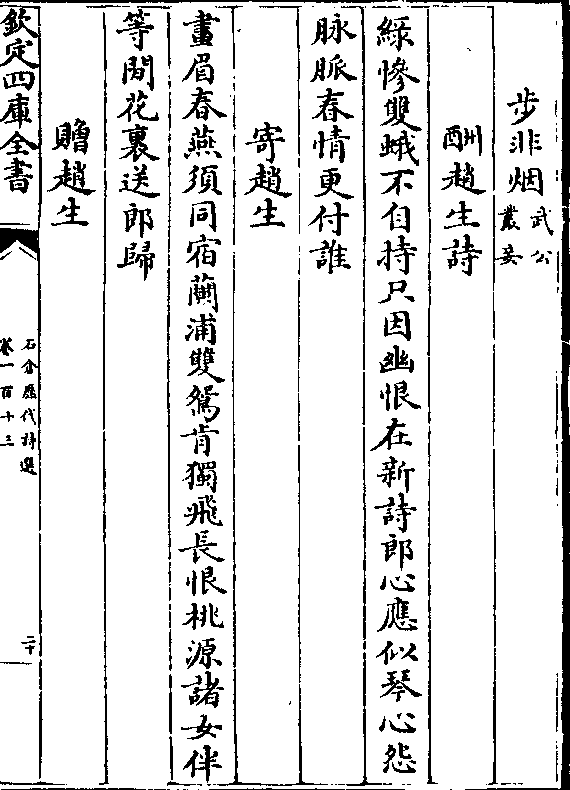 步非烟武公叢妾
酬趙生詩
緑慘雙蛾不自持只因幽恨在新詩郎心應似琴心怨
脉脈春情更付誰
寄趙生
畫眉春燕須同宿蘭浦雙鴛肯獨飛長恨桃源諸女伴
等閒花裏送郎歸
贈趙生
欽定四庫全書
石倉歷代詩選
卷一百十三
二十